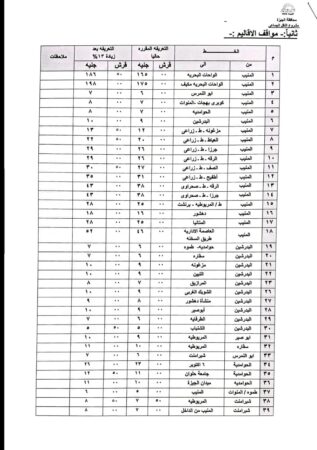 محافظة الجيزة
مشروع النقل الجماعي
ثانياً:- مواقف الاقاليم :-
م | الخط | التعريفه المقرره حاليا | التعريفه بعد زيادة ١٣% | ملاحظات
من | الي | قرش | جنيه | قرش | جنيه
١ | المنيب | الواحات البحريه | ٠٠ | ١٦٥ | ٥٠ | ١٨٦
٢ | المنيب | الواحات البحريه مكيف | ٠٠ | ١٧٥ | ٠٠ | ١٩٨
٣ | المنيب | ابو النمرس | ٠٠ | ٦ | ٠٠ | ٧
٤ | المنيب | كوبرى بهجات - المنوات | ٠٠ | ٧ | ٠٠ | ٨
٥ | المنيب | الحوامديه | ٠٠ | ٧ | ٠٠ | ٨
٦ | المنيب | البدرشين | ٠٠ | ٩ | ٠٠ | ١٠
٧ | المنيب | مزغونه - ط . زراعى | ٠٠ | ١٢ | ٥٠ | ١٣
٨ | المنيب | العياط - ط . زراعى | ٠٠ | ٢٠ | ٥٠ | ٢٢
٩ | المنيب | جرزا - ط . زراعى
١٠ | المنيب | الرقه - ط . زراعى
١١ | المنيب | الصف - ط . زراعى | ٠٠ | ٢٧ | ٥٠ | ٣٠
١٢ | المنيب | أطفيح - ط . زراعى | ٠٠ | ٣١ | ٠٠ | ٣٥
١٣ | المنيب | الرقه - ط . صحراوى | ٠٠ | ٣٨ | ٠٠ | ٤٣
١٤ | المنيب | جرزا - ط . صحراوى | ٠٠ | ٣٨ | ٠٠ | ٤٣
١٥ | المنيب | ط / المريوطيه - برنشت | ٠٠ | ٢٥ | ٠٠ | ٢٨
١٦ | المنيب | دهشور | ٠٠ | ١٦ | ٠٠ | ١٨
١٧ | المنيب | المتانيا | ٠٠ | ٢٥ | ٠٠ | ٢٨
١٨ | المنيب | العاصمة الاداريه طريق السخنه | ٠٠ | ٤٦ | ٠٠ | ٥٢
١٩ | البدرشين | حوامديه- طموه | ٠٠ | ٦ | ٠٠ | ٧
٢٠ | البدرشين | سقاره | ٠٠ | ٦ | ٠٠ | ٧
٢١ | البدرشين | مزغونه | ٠٠ | ٩ | ٠٠ | ١٠
٢٢ | البدرشين | التبين | ٠٠ | ٩ | ٠٠ | ١٠
٢٣ | البدرشين | المرازيق | ٠٠ | ٧ | ٠٠ | ٨
٢٤ | البدرشين | الشوبك الغربى | ٠٠ | ٩ | ٠٠ | ١٠
٢٧ | البدرشين | منشأة دهشور | ٠٠ | ٨ | ٠٠ | ٩
٢٨ | البدرشين | أبوصير | ٠٠ | ٩ | ٠٠ | ١٠
٢٩ | البدرشين | الطرفايه | ٠٠ | ٦ | ٠٠ | ٧
٣٠ | البدرشين | الشنباب | ٠٠ | ٥ | ٥٠ | ٥
٣١ | ابو صير | المريوطيه | ٠٠ | ٩ | ٠٠ | ١٠
٣٢ | سقاره | المريوطيه | ٠٠ | ١٠ | ٠٠ | ١١
٣٣ | ابو النمرس | شبرامنت | ٠٠ | ٦ | ٠٠ | ٧
٣٤ | الحوامدية | ٦ اكتوبر | ٠٠ | ٢٣ | ٠٠ | ٢٦
٣٥ | الحوامديه | جامعة حلوان | ٠٠ | ١١ | ٥٠ | ١٢
٣٦ | الحوامديه | ميدان الجيزة | ٠٠ | ١٠ | ٠٠ | ١١
٣٧ | طموه / المنوات | المنيب | ٠٠ | ٥ | ٠٠ | ٦
٣٨ | شبرامنت | المريوطيه | ٥٠ | ٧ | ٥٠ | ٨
٣٩ | شبرامنت | المنيب من الداخل | ٠٠ | ٧ | ٠٠ | ٨